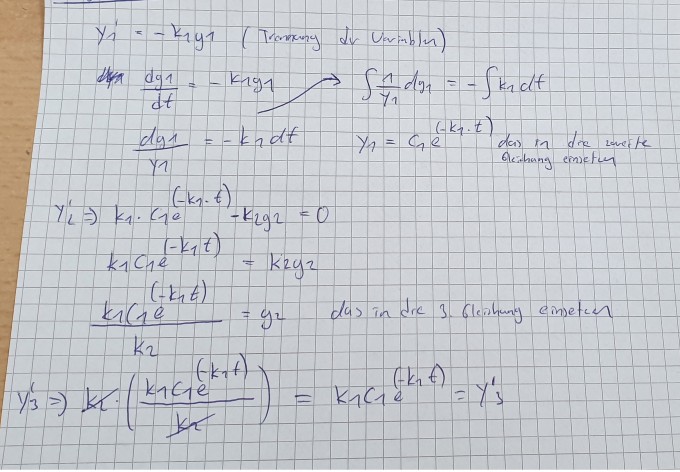 y₁' = -k₁y₁ (Trennung der Variablen)
dy₁/dt = -k₁y₁ → ∫ 1/y₁ dy₁ = -∫ k₁ dt
dy₁/y₁ = -k₁dt y₁ = c₁e^(-k₁·t) das in die zweite Gleichung einsetzen
y₂' ⇒ k₁·c₁e^(-k₁·t) - k₂y₂ = 0
k₁c₁e^(-k₁t) = k₂y₂
k₁c₁e^(-k₁t)/k₂ = y₂ das in die 3. Gleichung einsetzen
y₃' ⇒ k₂·(k₁c₁e^(-k₁t)/k₂) = k₁c₁e^(-k₁t) = y₃'